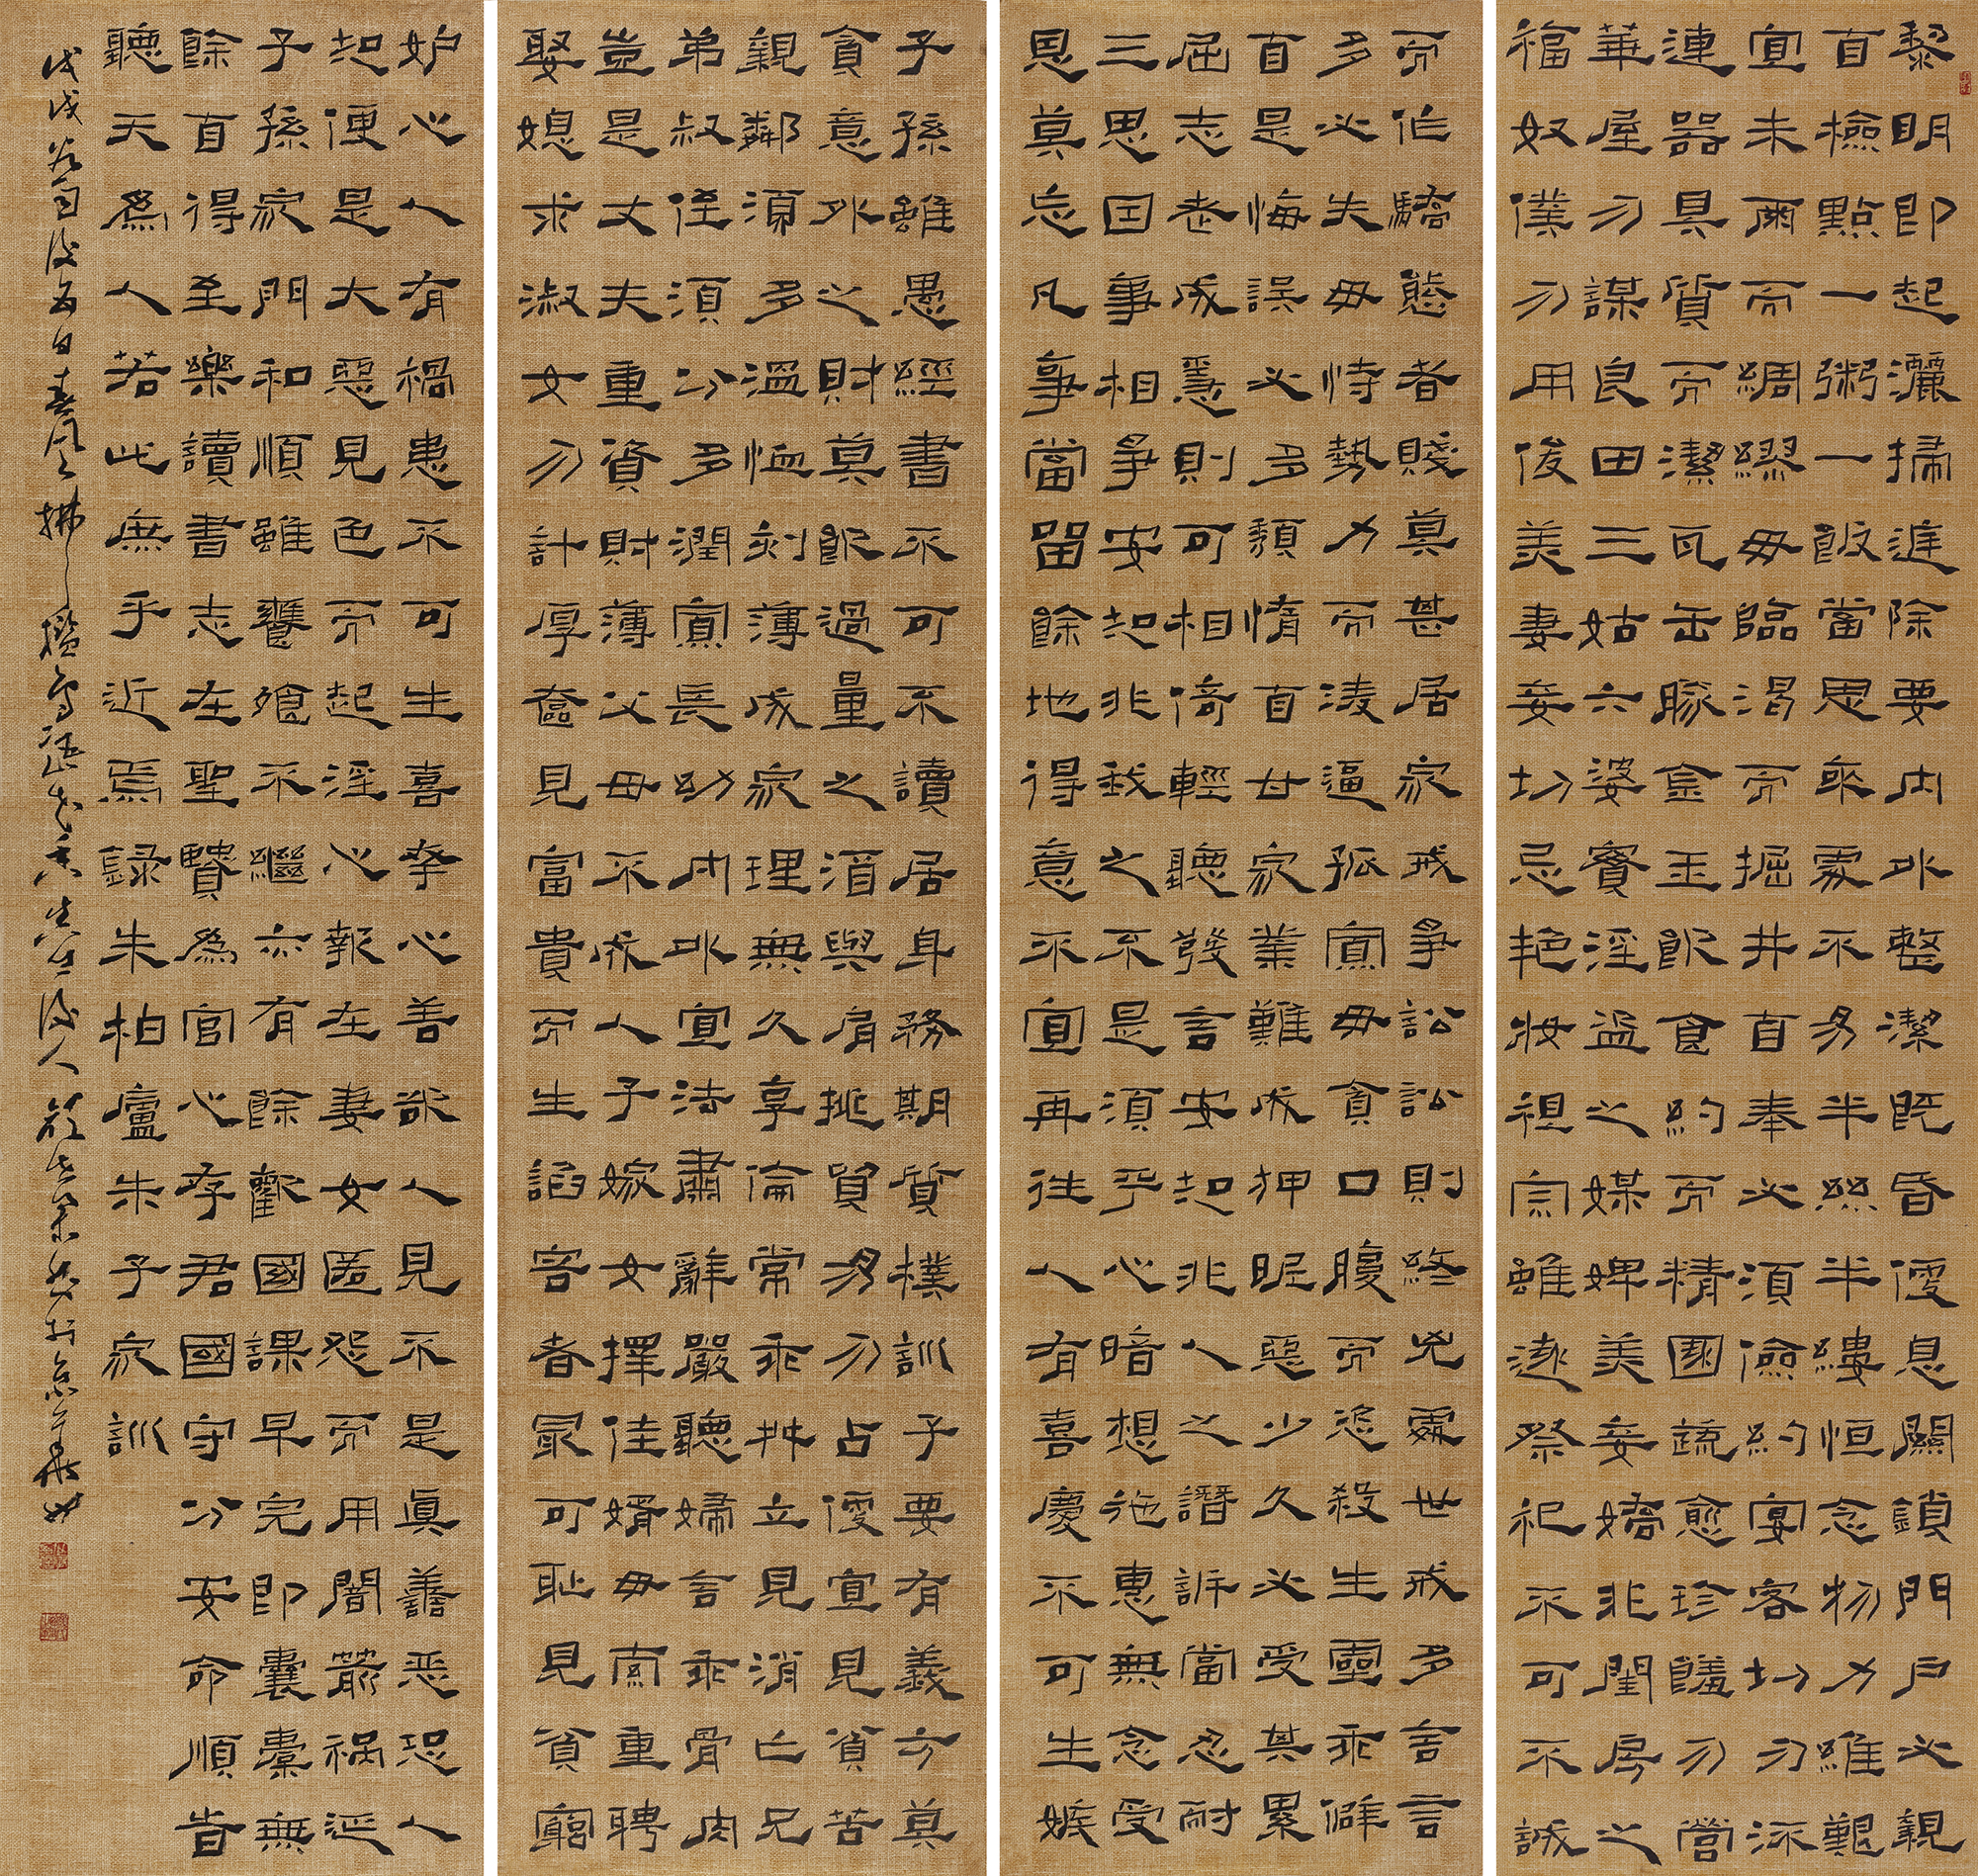 黎明即起灑掃庭除要內外整潔既昏便息關鎖門戶必親
自檢點一粥一飯當思來處不易半絲半縷恒念物力維艱
宜未雨而綢繆毋臨渴而掘井自奉必須儉約宴客切勿流
連器具質而潔瓦缶勝金玉飲食約而精園蔬愈珍饈勿營
華屋勿謀良田三姑六婆實淫盜之媒婢美妾嬌非閨房之
福奴僕勿用俊美妻妾切忌艷妝祖宗雖遠祭祀不可不誠
而作驕態者賤莫甚居家戒爭訟訟則終凶處世戒多言言
多必失毋恃勢力而淩逼孤寡毋貪口腹而恣殺生靈乖僻
自是悔誤必多頹惰自甘家業難成狎昵惡少久必受其累
屈志老成急則可相倚輕聽發言安知非人之譖訴當忍耐
三思因事相爭安知非我之不是須平心暗想施惠無念受
恩莫忘凡事當留餘地得意不宜再往人有喜慶不可生嫉
子孫雖愚經書不可不讀居身務期質樸訓子要有義方莫
貪意外之財莫飲過量之酒與肩挑貿易勿占便宜見貧苦
親鄰須多溫恤刻薄成家理無久享倫常乖舛立見消亡兄
弟叔侄須分多潤寡長幼內外宜法肅辭嚴聽婦言乖骨肉
豈是丈夫重資財薄父母不成人子嫁女擇佳婿毋索重聘
娶媳求淑女勿計厚奩見富貴而生諂容者最可恥見貧窮
妒心人有禍患不可生喜幸心善欲人見不是真善惡恐人
知便是大惡見色而起淫心報在妻女匿怨而用暗箭禍延
子孫家門和順雖饔飧不繼亦有餘歡國課早完即囊橐無
餘自得至樂讀書志在聖賢為官心存君國守分安命順時
聽天為人若此庶乎近焉錄朱柏廬朱子家訓
戊戌谷雨後五日春風拂檻鳥語花香後人書於京華